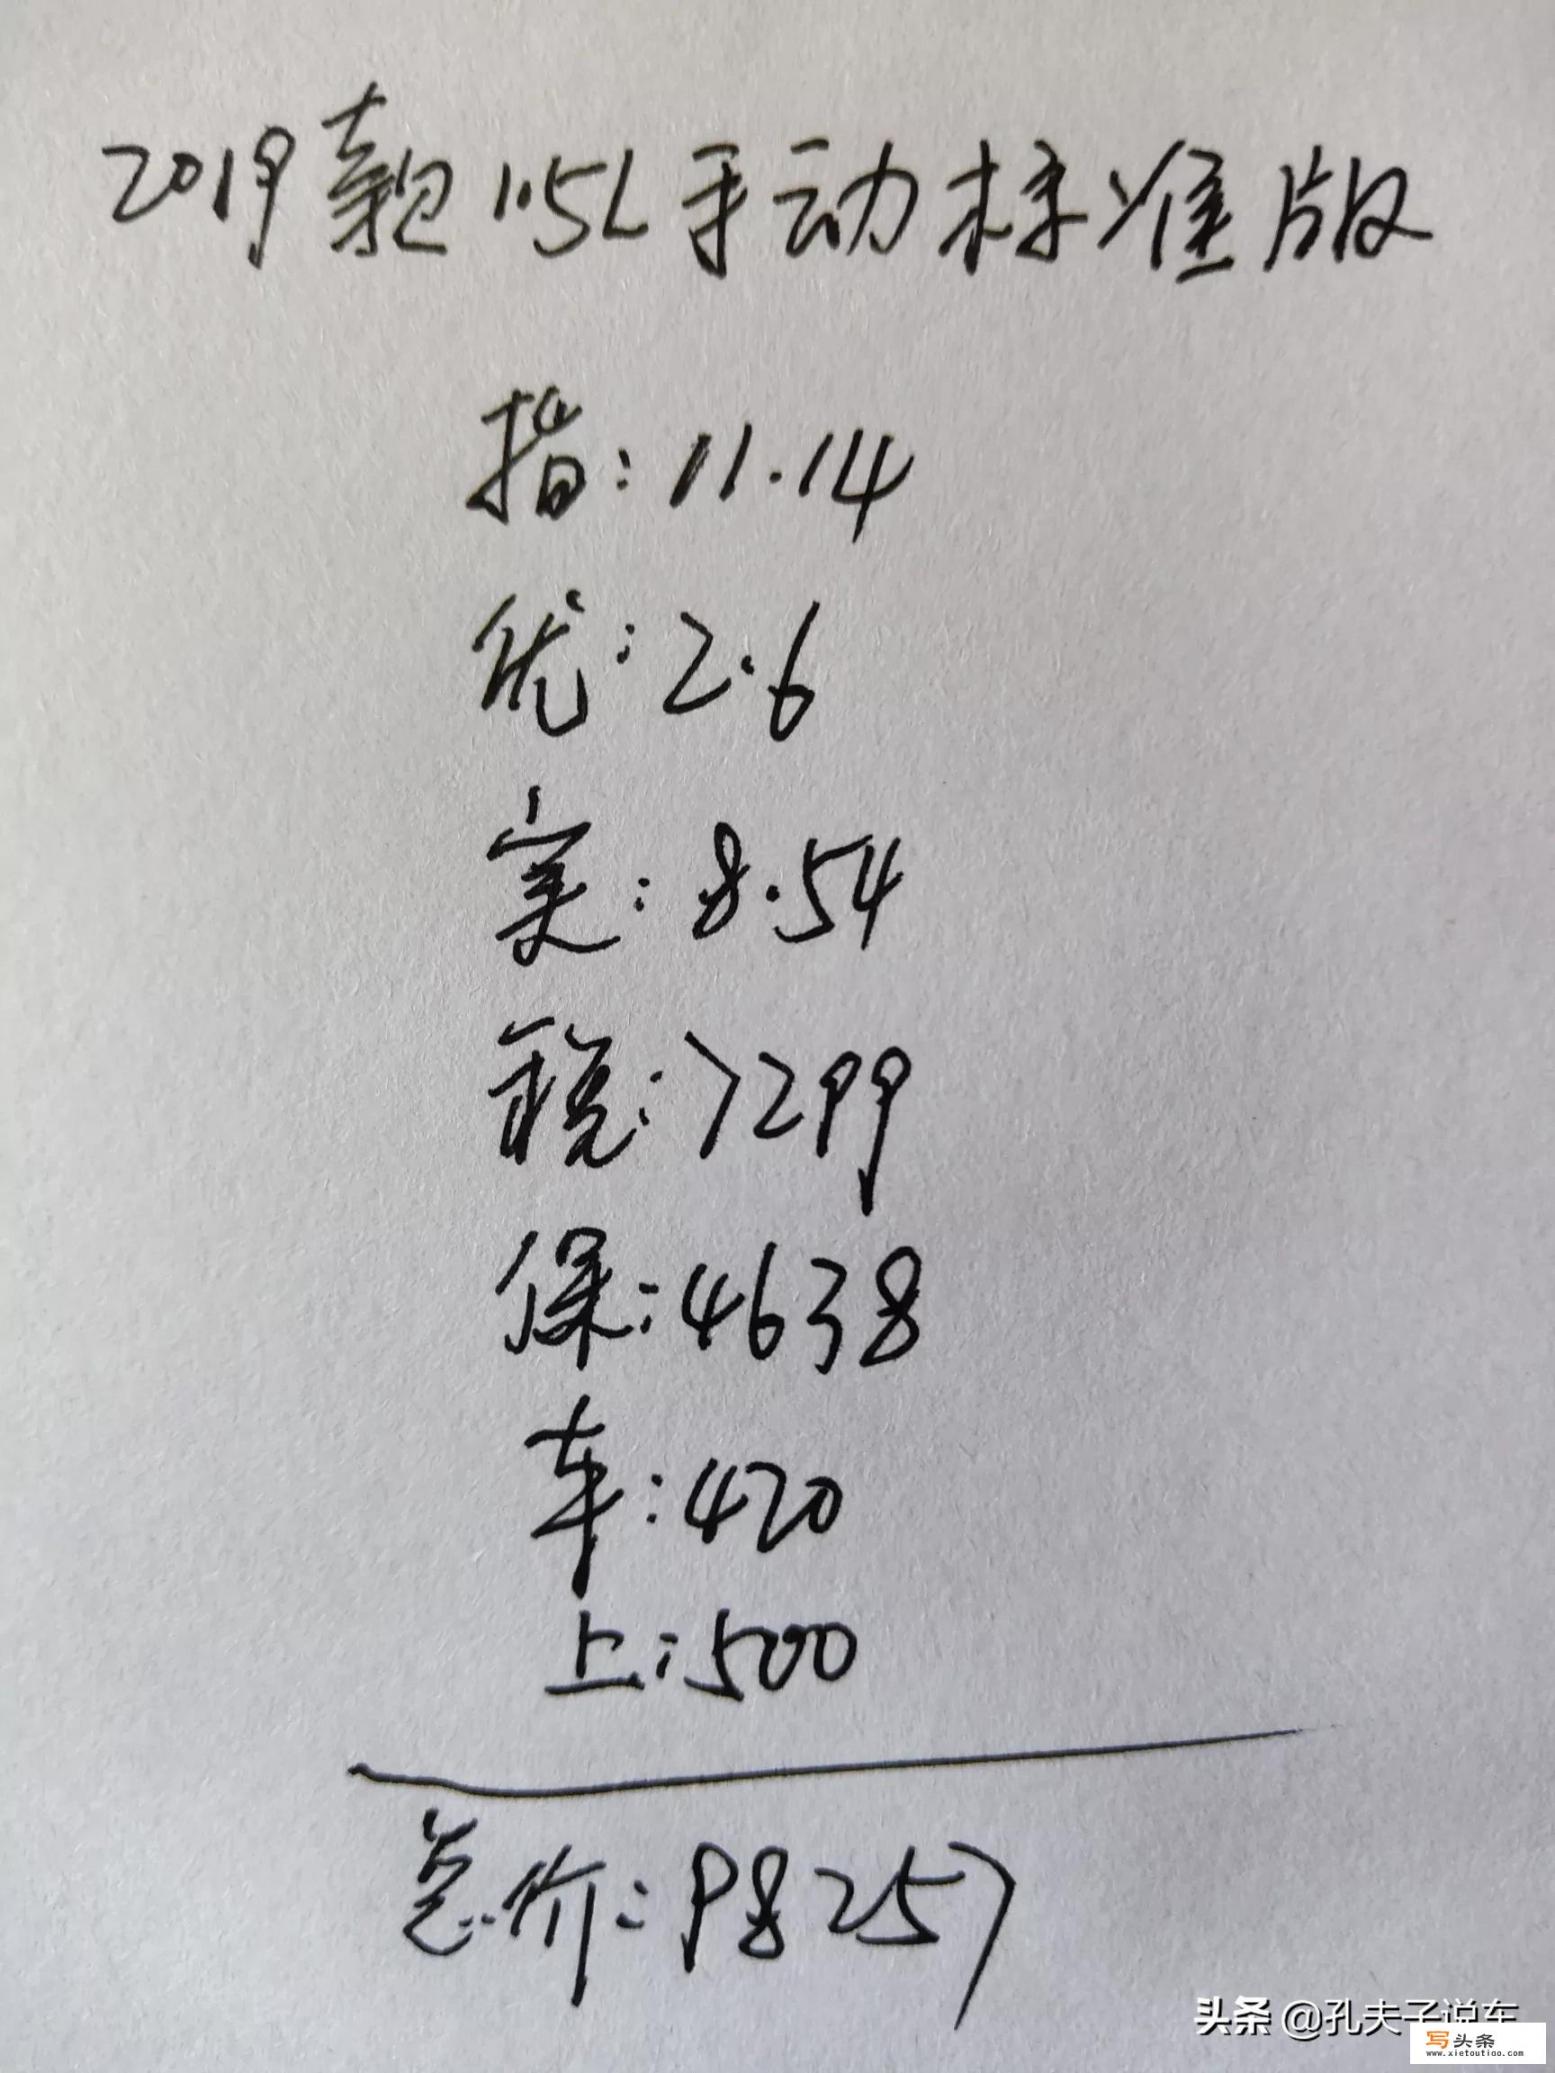 2019款1.5L手动标准版
指:11.14
优:2.6
实:8.54
税:7299
保:4638
车:420
上:500
总价:98257
头条 @孔夫子说车
写头条
www.xietoutiao.com